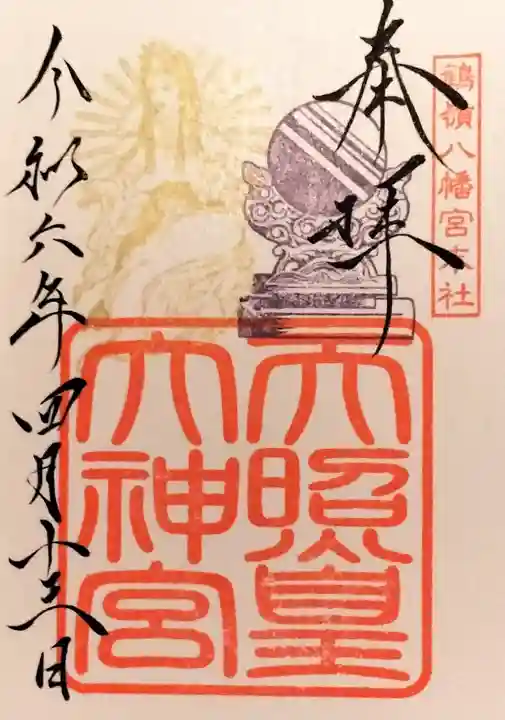 鶴嶺八幡宮末社
奉拝
天照皇
大神宮
令和六年四月十三日